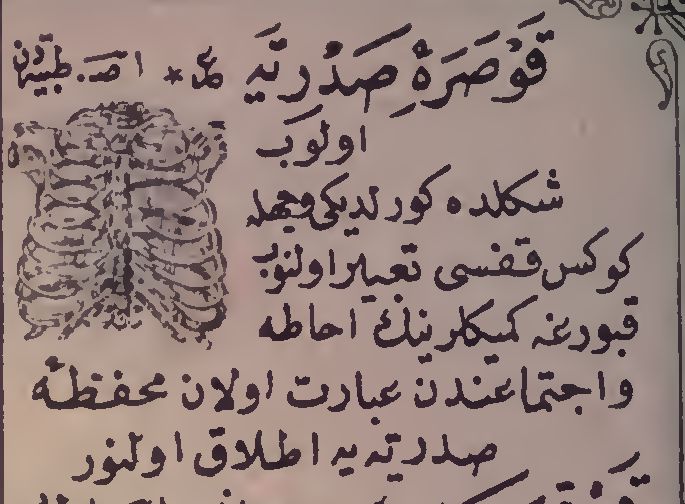 قَوْصَرَۀِ صَدْرِيَّه ع * ا صـ. طبيبدن
اولوب
شكلده كورلديكى وجهله
كوكس قفسى تعبير اولنوب
قبورغه كميكلرينك احاطه
واجتماعندن عبارت اولان محفظهٔ
صدريه‌يه اطلاق اولنور